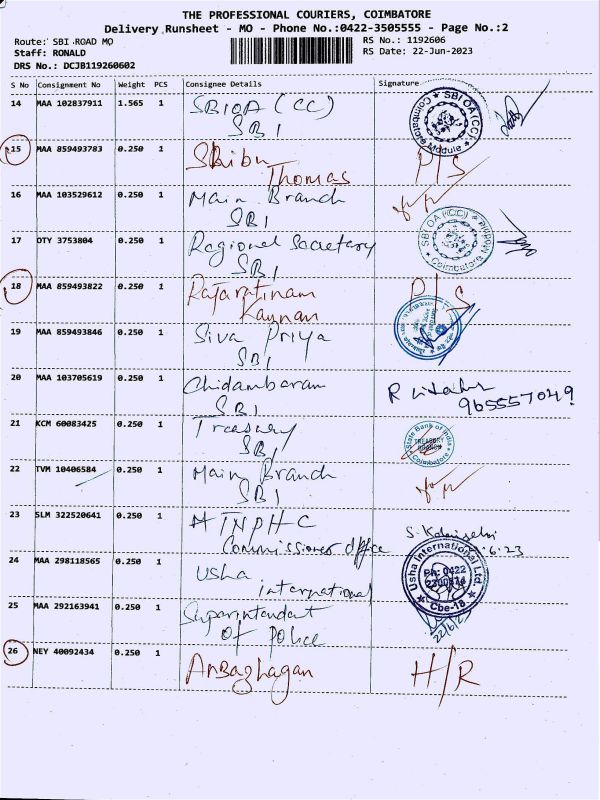 THE PROFESSIONAL COURIERS, COIMBATORE
Delivery Runsheet - MO - Phone No.:0422-3505555 - Page No.:2
Route: SBI ROAD MO
RS No.: 1192606
Staff: RONALD
RS Date: 22-Jun-2023
DRS No.: DCJB119260602
S No Consignment No Weight PCS Consignee Details Signature
14 MAA 102837911 1.565 1 SBIOA (CC)
SBI
SBI OA (CC)
Coimbatore Module
15 MAA 859493783 0.250 1 Shibu
Thomas
P/S
16 MAA 103529612 0.250 1 Main Branch
SBI
17 OTY 3753804 0.250 1 Regional Secretary
SBI
SBI OA (CC) Module
Coimbatore
18 MAA 859493822 0.250 1 Rajaratinam
Kannan
P/S
19 MAA 859493846 0.250 1 Siva Priya
SBI
20 MAA 103705619 0.250 1 Chidambaram
SBI
R
9655570498
21 KCM 60083425 0.250 1 Treasury
SBI
State Bank of India
TREASURY
BRANCH
Coimbatore
22 TVM 10406584 0.250 1 Main Branch
SBI
23 SLM 322520641 0.250 1 TNPHC
Commissioner office
S. Kalaiselvi
6.23
24 MAA 298118565 0.250 1 Usha
international
Usha International Ltd
Ph: 0422
Cbe-18
25 MAA 292163941 0.250 1 Superintendant
of Police
22/6/2
26 NEY 40092434 0.250 1 Anbazhagan
H/R